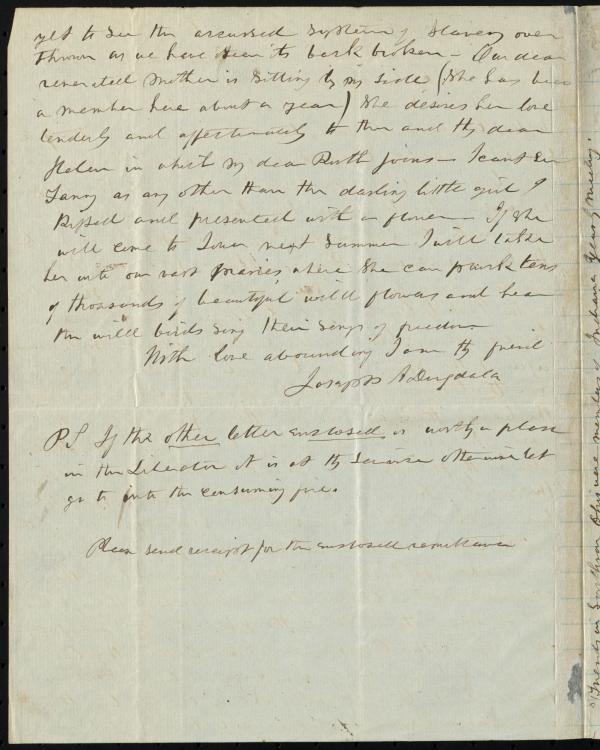 yet to see the accursed system of slavery over
thrown as we have seen its back broken – Our dear
venerated mother is sitting by my side (she has been
a member here about a year) she desires her love
tenderly and affectionately to thee and thy dear
Helen in which my dear Ruth joins – I cant see
Fanny as any other than the darling little girl I
kissed and presented with a flower – If she
will come to Iowa next summer I will take
her into our vast praries where she can pluck tens
of thousands of beautiful wild flowers and hear
the wild birds sing their songs of freedom
With love abounding I am thy friend
Joseph A Dugdale
PS If the other letter enclosed is worth a place
in the Liberator it is at thy service otherwise let
go it into the consuming fire.
Please send receipt for the enclosed remittance
Friends in Southern Ohio were members of Indiana Yearly Meeting.